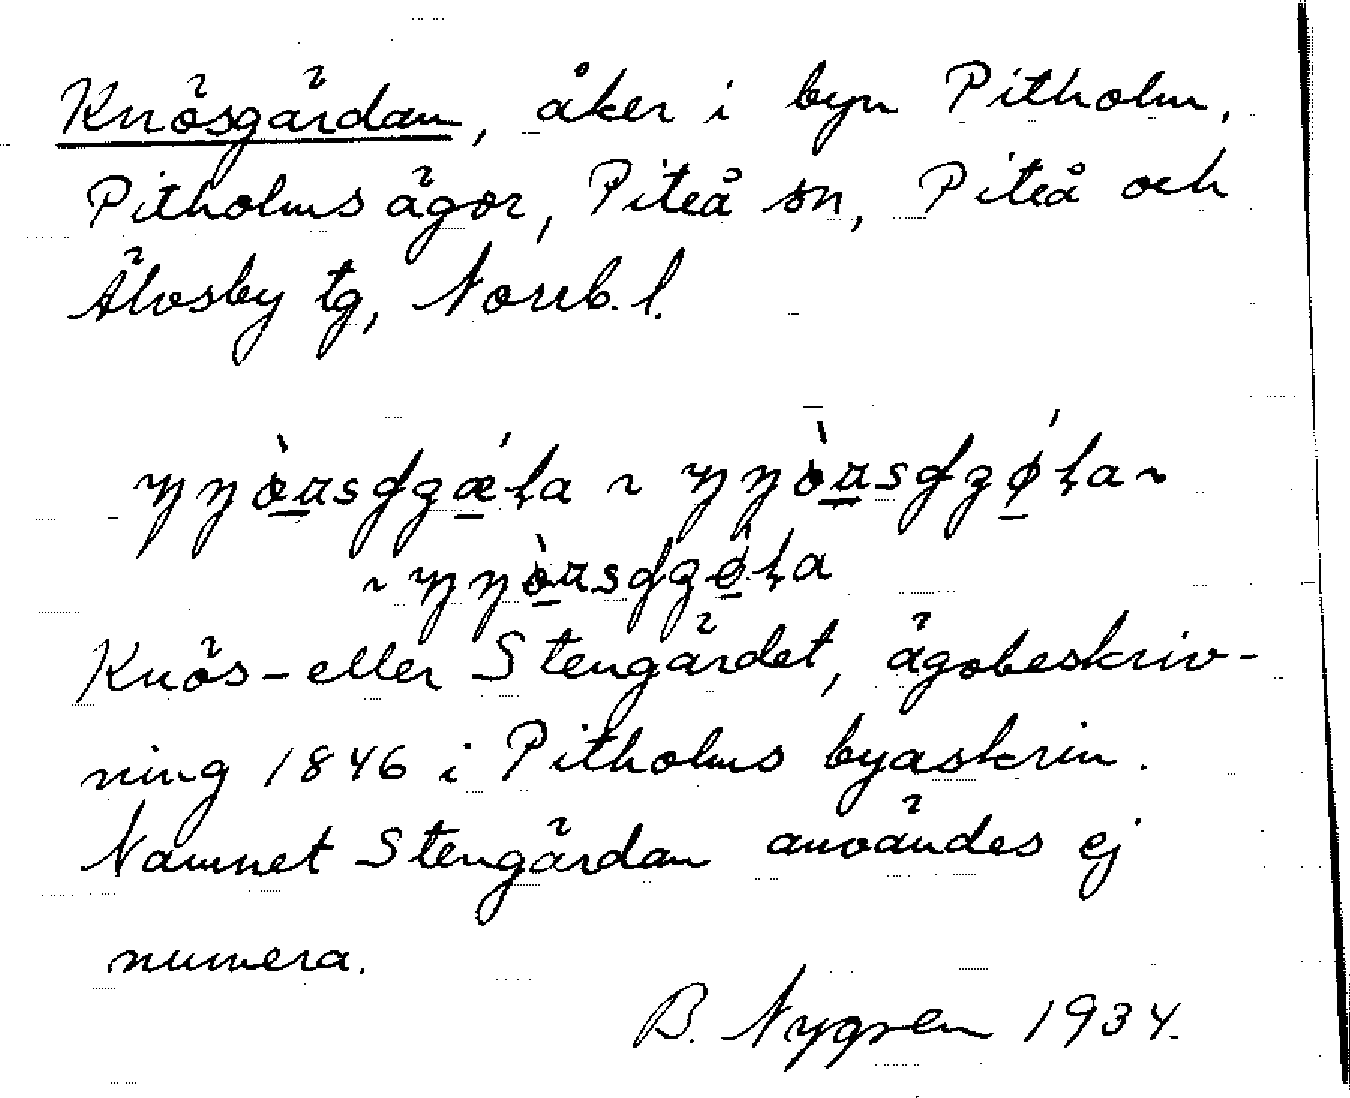 Knösgärdan, åker i byn Pitholm,
Pitholms ägor, Piteå sn, Piteå och
Älvsby tg, Norrb. l.
Knös- eller Stengärdet, ägobeskriv-
ning 1846 i Pitholms byaskrin.
Namnet Stengärdan användes ej
numera.
B. Nygren 1934.